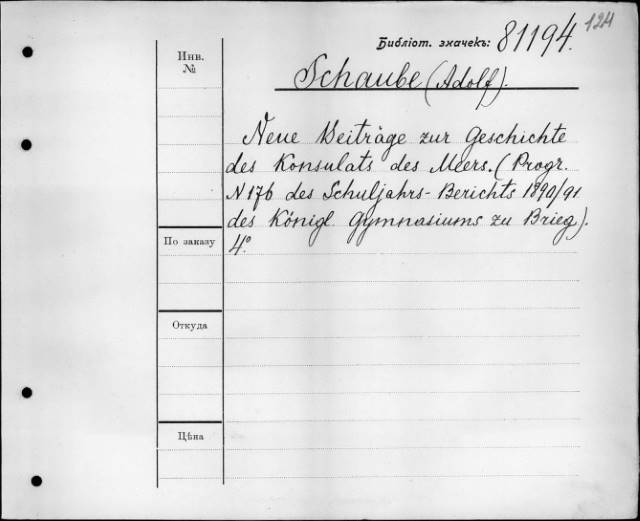 124
Библіот. значекъ: 81194.
Инв.
№
Schaube (Adolf).
Neue Beiträge zur Geschichte
des Konsulats des Meers. (Progr.
N 176 des Schuljahrs-Berichts 1890/91
des Königl. Gymnasiums zu Brieg).
4°
По заказу
Откуда
Цѣна